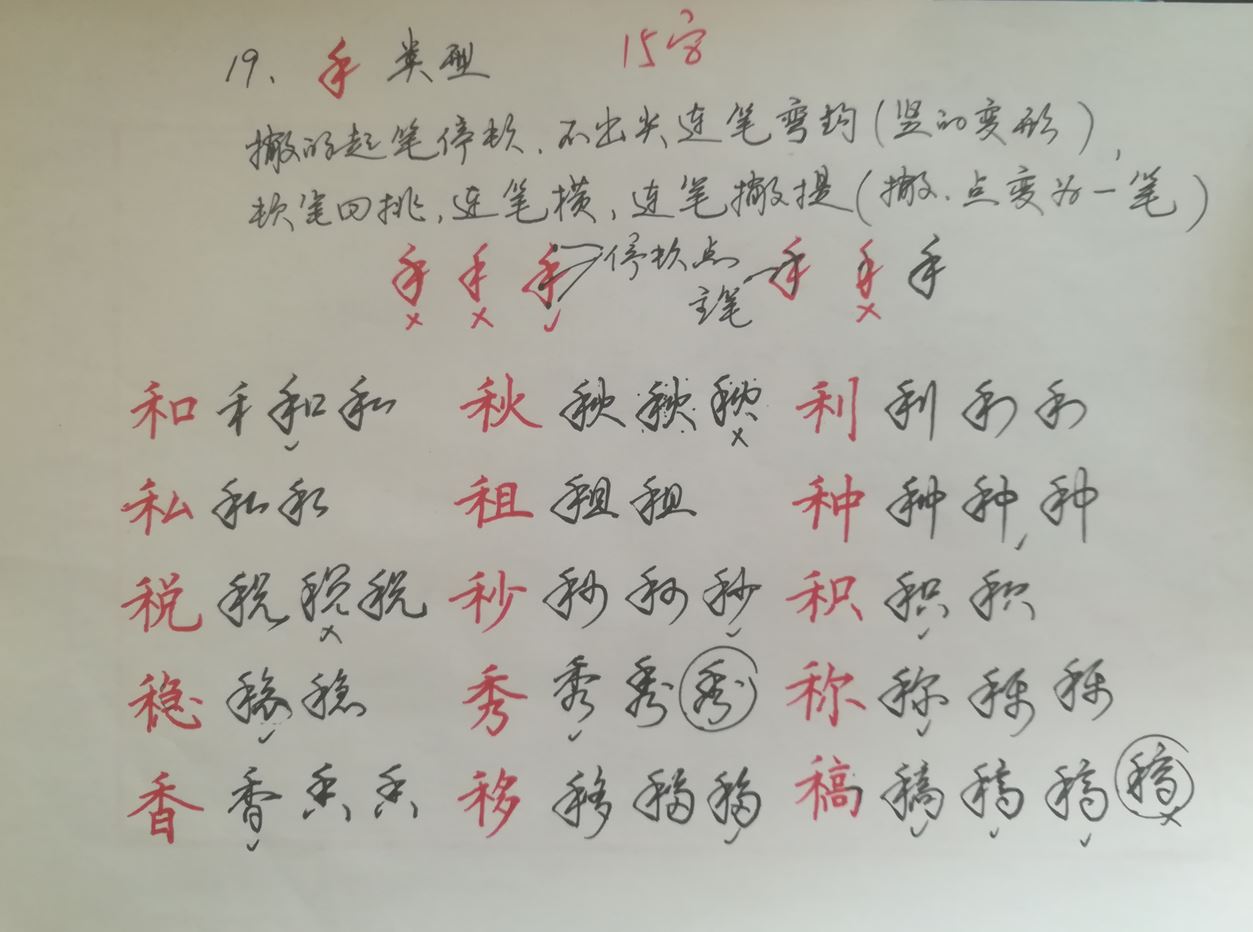 19、禾类型 15字
撇的起笔停顿、不出尖连笔弯钩(竖的变形),
顿笔回挑,连笔横,连笔撇提(撇、点变为一笔)
禾 禾 禾 停顿点 禾 禾 禾
主笔
和 禾 和 和 秋 秋 秋 秋 利 利 利 利
私 私 私 租 租 租 种 种 种 种
税 税 税 税 秒 秒 秒 秒 积 积 积
稳 稳 稳 秀 秀 秀 秀 称 称 称 称
香 香 香 香 移 移 移 移 稿 稿 稿 稿 稿